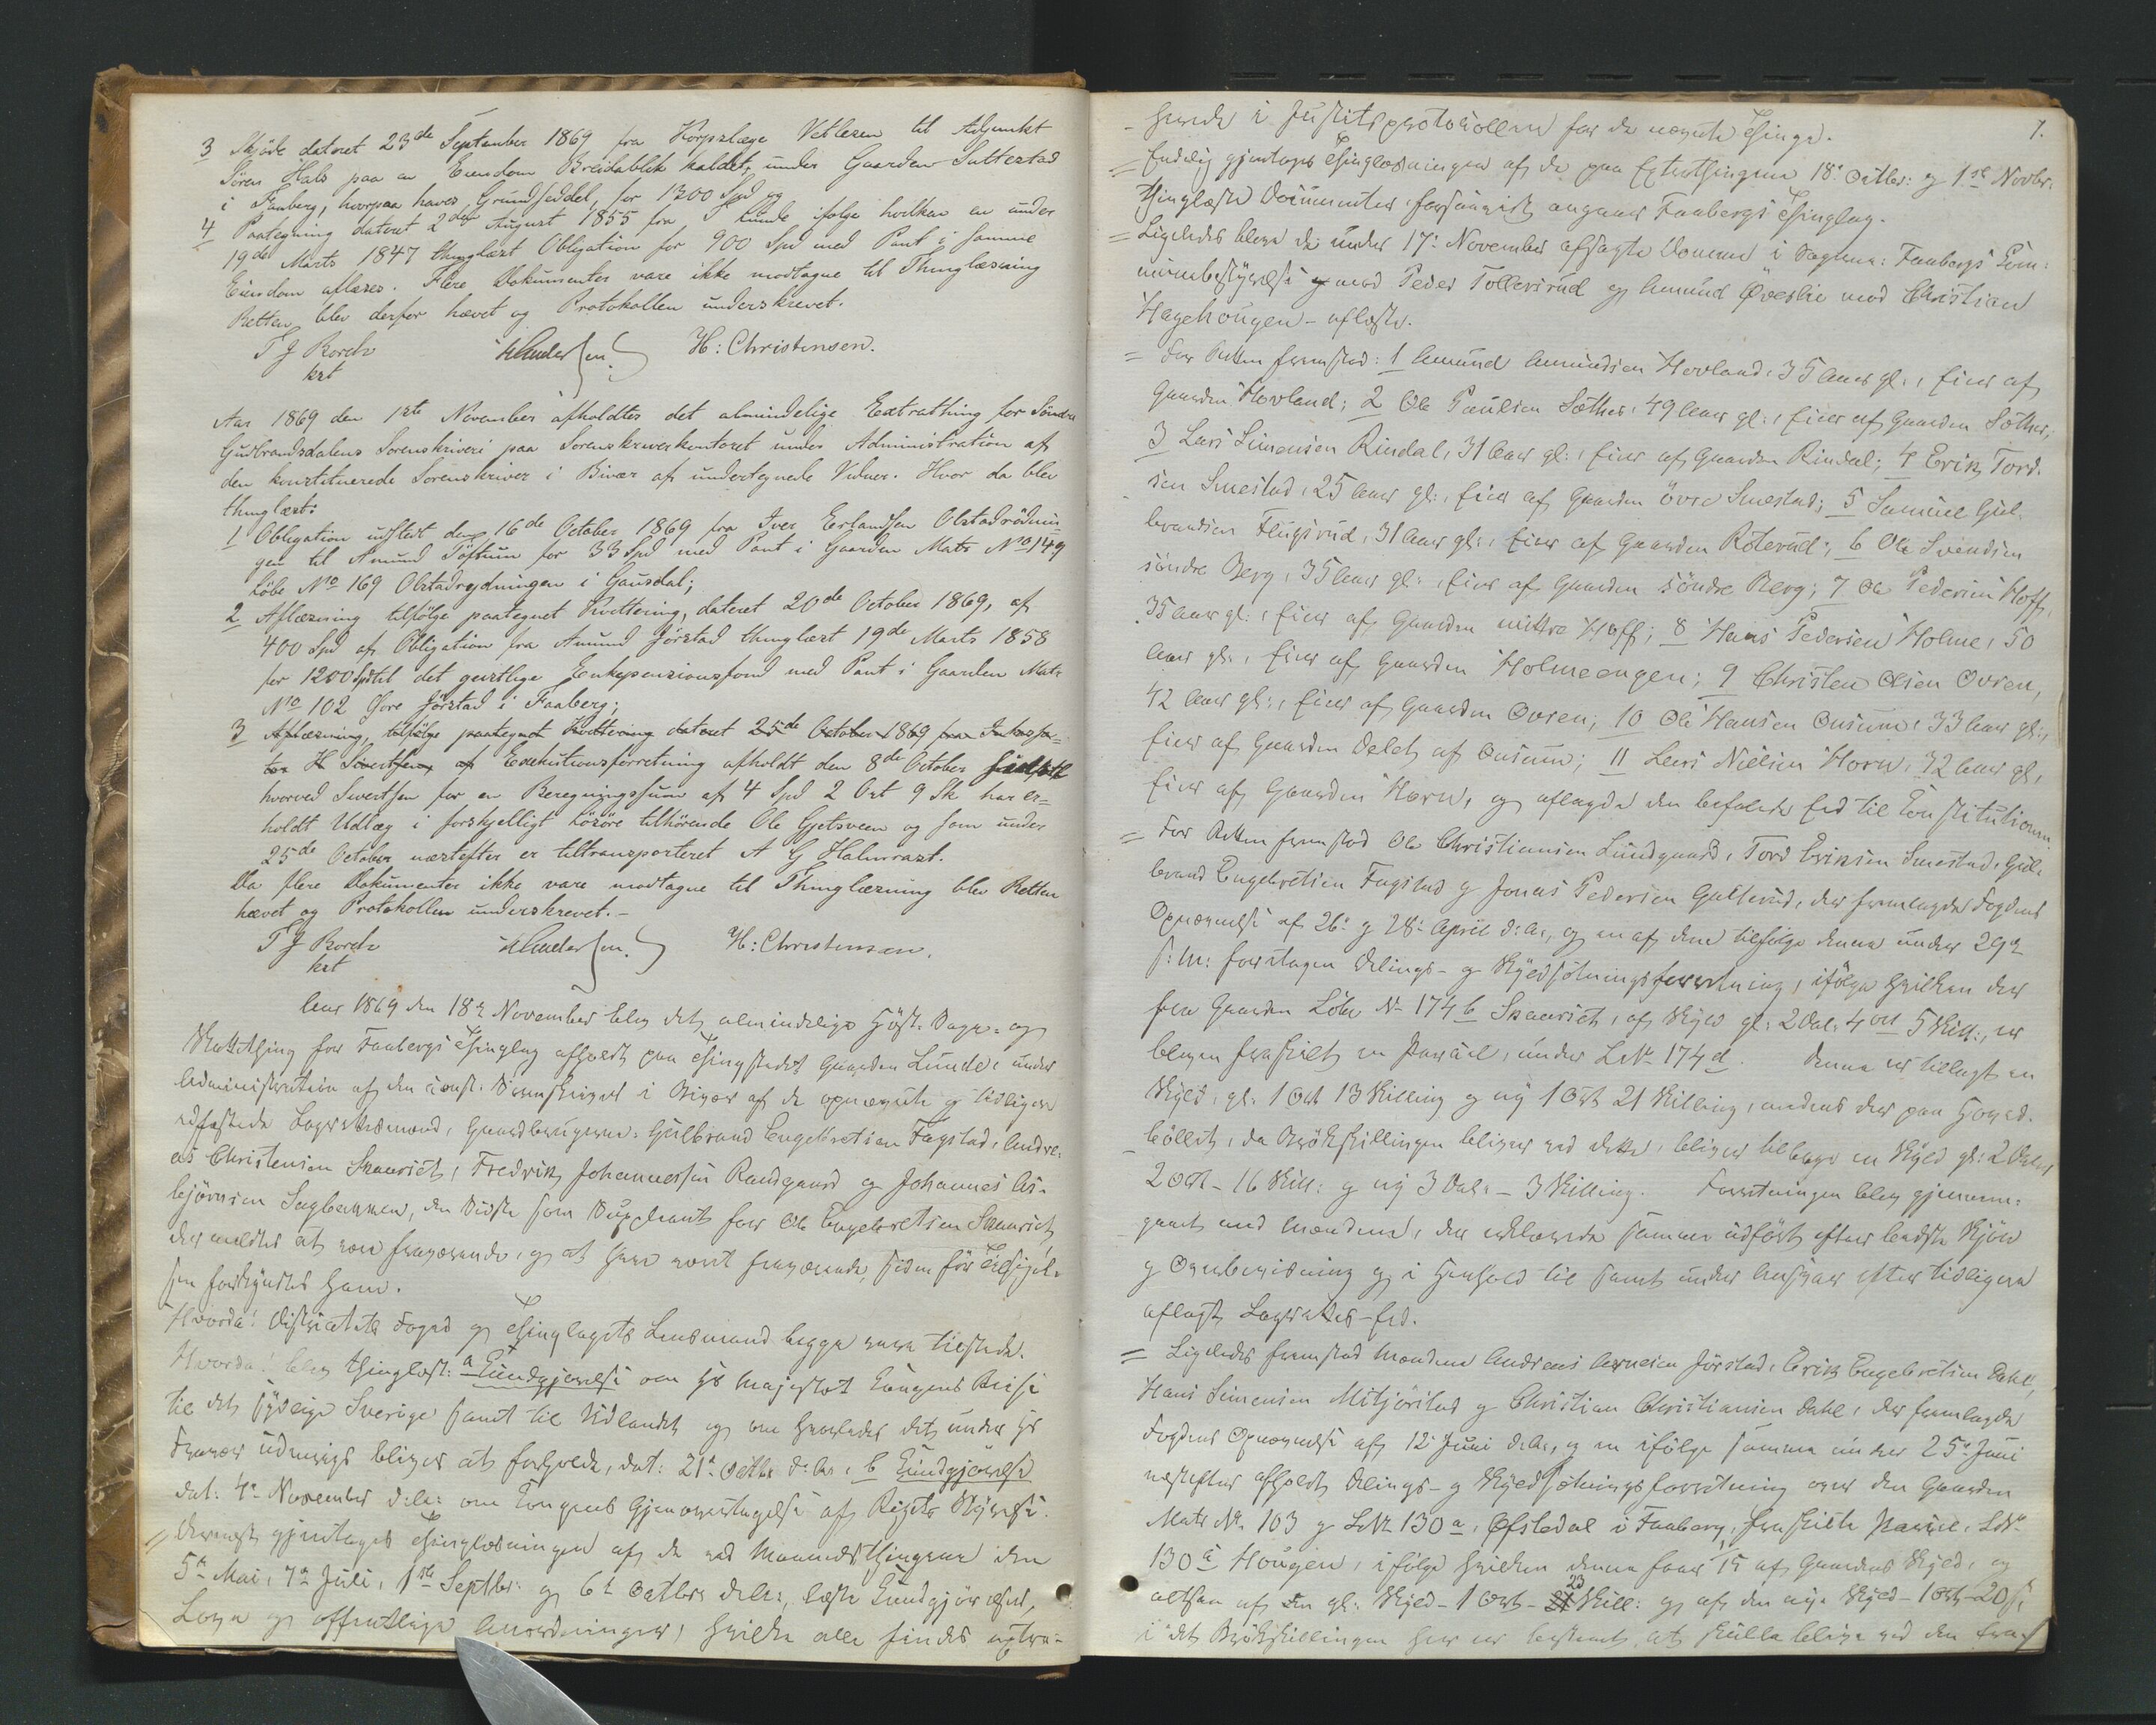 3 Skjøde dateret 23de September 1869 fra Korpslæge Vetlesen til Adjunkt
Sören Hals paa en Eiendom Breidablik kaldet, under Gaarden Suttestad
i Faaberg, hvorpaa haves Grundseddel, for 1300 Spd og
4 Paategning dateret 2den August 1855 fra T Lunde ifølge hvilken en under
19de Marts 1847 thinglæst Obligation for 900 Spd med Pant i samme
Eiendom aflæses. Flere Dokumenter vare ikke modtagne til Thinglæsning
Retten blev derfor hævet og Protokollen underskrevet.
T J Borch H: Christensen.
kst
Aar 1869 den 1ste November afholdtes det almindelige Extrathing for Søndre
Gudbrandsdalens Sorenskriveri paa Sorenskriverkontoret under Administration af
den konstituerede Sorenskriver i Bivær af undertegnede Vidner. Hvor da blev
thinglæst:
1 Obligation udstedt den 16de October 1869 fra Iver Erlandsen Olstadrödnin-
gen til Amund Töftum for 33 Spd med Pant i Gaarden Matr No 149
Löbe No 169 Olstadrydningen i Gausdal;
2 Aflæsning tilfølge paategnet Kvittering, dateret 20de October 1869, af
400 Spd af Obligation fra Amund Jörstad thinglæst 19de Marts 1858
for 1200 Spd til det geistlige Enkepensionsfond med Pant i Gaarden Matr
No 102 Øvre Jörstad i Faaberg;
3 Aflæsning, tilfølge paategnet Kvittering dateret 25de October 1869 fra
H Sivertsen, af Exekutionsforretning afholdt den 8de October
hvorved Sivertsen for en Beregningssum af 4 Spd 2 Ort 9 Sk har er-
holdt Udlæg i forskjelligt Løsöre tilhørende Ole Gjetsveen og som under
25de October næstefter er tiltransporteret A G Halmrast.
Da flere Dokumenter ikke vare modtagne til Thinglæsning blev Retten
hævet og Protokollen underskrevet.-
T J Borch H: Christensen.
kst
Aar 1869 den 18de November blev det almindelige Høst- Sage- og
Skattething for Faabergs Thinglag afholdt paa Thingstedet Gaarden Lunde, under
Administration af den const. Sorenskriver i Bivær af de opnævnte og tidligere
edfæstede Lagrettesmænd, Gaardbrugerne: Gulbrand Engebretsen Fagstad, Andre-
as Christensen Skaarset, Fredrik Johannessen Randgaard og Johannes As-
bjørnsen Sagbakken, den Sidste som Suppleant for Ole Engebretsen Skaarset,
der meldtes at være fraværende, og at have været fraværende, siden før Tilsigel-
sen forkyndtes ham.
Hvorda! Distriktets Foged og Thinglagets Lensmand begge vare tilstede.
Hvorda! blev thinglæst: a Kundgjørelse om Hs Majestæt Kongens Reise
til det sydlige Sverige samt til Udlandet og om hvorledes det under Hs
Fravær udenrigs bliver at forholde, dat: 21de Octbr d: A:, b Kundgjørelse
dat: 4de November d. A: om Kongens Gjenovertagelse af Rigets Styrelse.
= Dernæst gjentoges Thinglæsningen af de ved Maanedsthingene den
5te Mai, 7de Juli, 1ste Septbr: og 6te Octbr d. A:, læste Kundgjørelser,
Love og offentlige Anordninger, hvilke alle findes extra-
7.
herede i Justitsprotocollen for de nævnte Thinge.
= Endelig gjentoges Thinglæsningen af de paa Extrathingene 18de Octbr: og 1ste Novbr.
thinglæste Documenter forsaavidt angaaer Faabergs Thinglag.
= Ligeledes bleve de under 17de November afsagte Domme i Sagerne: Faabergs Com-
munebestyrelse mod Peder Tollersrud og Amund Øveslie mod Christian
Hagehougen - aflæste.
= For Retten fremstod: 1 Amund Amundsen Hovland, 35 Aar gl:, Eier af
Gaarden Hovland; 2 Ole Paulsen Sæther, 49 Aar gl:, Eier af Gaarden Sæther;
3 Lars Simensen Rindal, 31 Aar gl:, Eier af Gaarden Rindal; 4 Erik Tord-
sen Smestad, 25 Aar gl:, Eier af Gaarden övre Smestad; 5 Samuel Gul-
brandsen Flugsrud, 31 Aar gl:, Eier af Gaarden Roterud; 6 Ole Svendsen
söndre Berg, 35 Aar gl:, Eier af Gaarden söndre Berg; 7 Ole Pedersen Hoff,
35 Aar gl:, Eier af Gaarden Hoff; 8 Hans Pedersen Holme, 50
Aar gl:, Eier af Gaarden Holmeengen; 9 Christen Olsen Ovren,
42 Aar gl:, Eier af Gaarden Ovren; 10 Ole Hansen Onsum, 33 Aar gl:,
Eier af Gaarden Delet af Onsum; 11 Lars Nielsen Horn, 32 Aar gl,
Eier af Gaarden Horn, og aflagde den befalede Ed til Constitutionen.
= For Retten fremstod Ole Christiansen Lundgaard, Tord Eriksen Smestad, Gul-
brand Engebretsen Fagstad og Jonas Pedersen Gullerud, der fremlagde Fogdens
Opnævnelse af 26de og 28de April d: A:, og en af dem tilfølge denne under 29de
s: M: foretagen Delings- og Skyldsætningsforretning, ifølge hvilken der
fra Gaarden Löbe No 174 b Skaarset, af Skyld gl: 2 Dal: 4 Ort 5 Skill:, er
bleven fraskilt en Parcel, under L.No 174 d. Denne er tillagt en
Skyld, gl: 1 Ort 13 Skilling og ny 1 Ort 21 Skilling, medens der paa Hoved-
böllet, da Brökskillingen bliver ved dette, bliver tilbage en Skyld gl: 2 Daler
2 Ort - 16 Skill: og ny 3 Dal: - 3 Skilling. Forretningen blev gjennem-
gaaet med Mændene, der erklærede samme udført efter bedste Skjøn
og Overbevisning og i Henhold til samt under Ansvar efter tidligere
aflagt Lagrettes-Ed.
= Ligeledes fremstod Mændene Andreas Arnesen Jörstad, Erik Engebretsen Dahl,
Hans Simensen Mitjörstad og Christian Christiansen Dahl, der fremlagde
Fogdens Opnævnelse af 12 Juni d. A:, og en ifölge samme under 25de Juni
næstefter afholdt Delings- og Skyldsætningsforretning over den Gaarden
Matr No. 103 og L.No 130 a, Øfstedal i Faaberg, fraskilte Parcel, L.No
130 Hougen, ifølge hvilken denne faar af Gaardens Skyld, og
altsaa af den gl: Skyld - 1 Ort - 23 Skill: og af den nye Skyld - 1 Ort - 20 s
i det Brökskillingen her er bestemt, at skulle blive ved den fra-